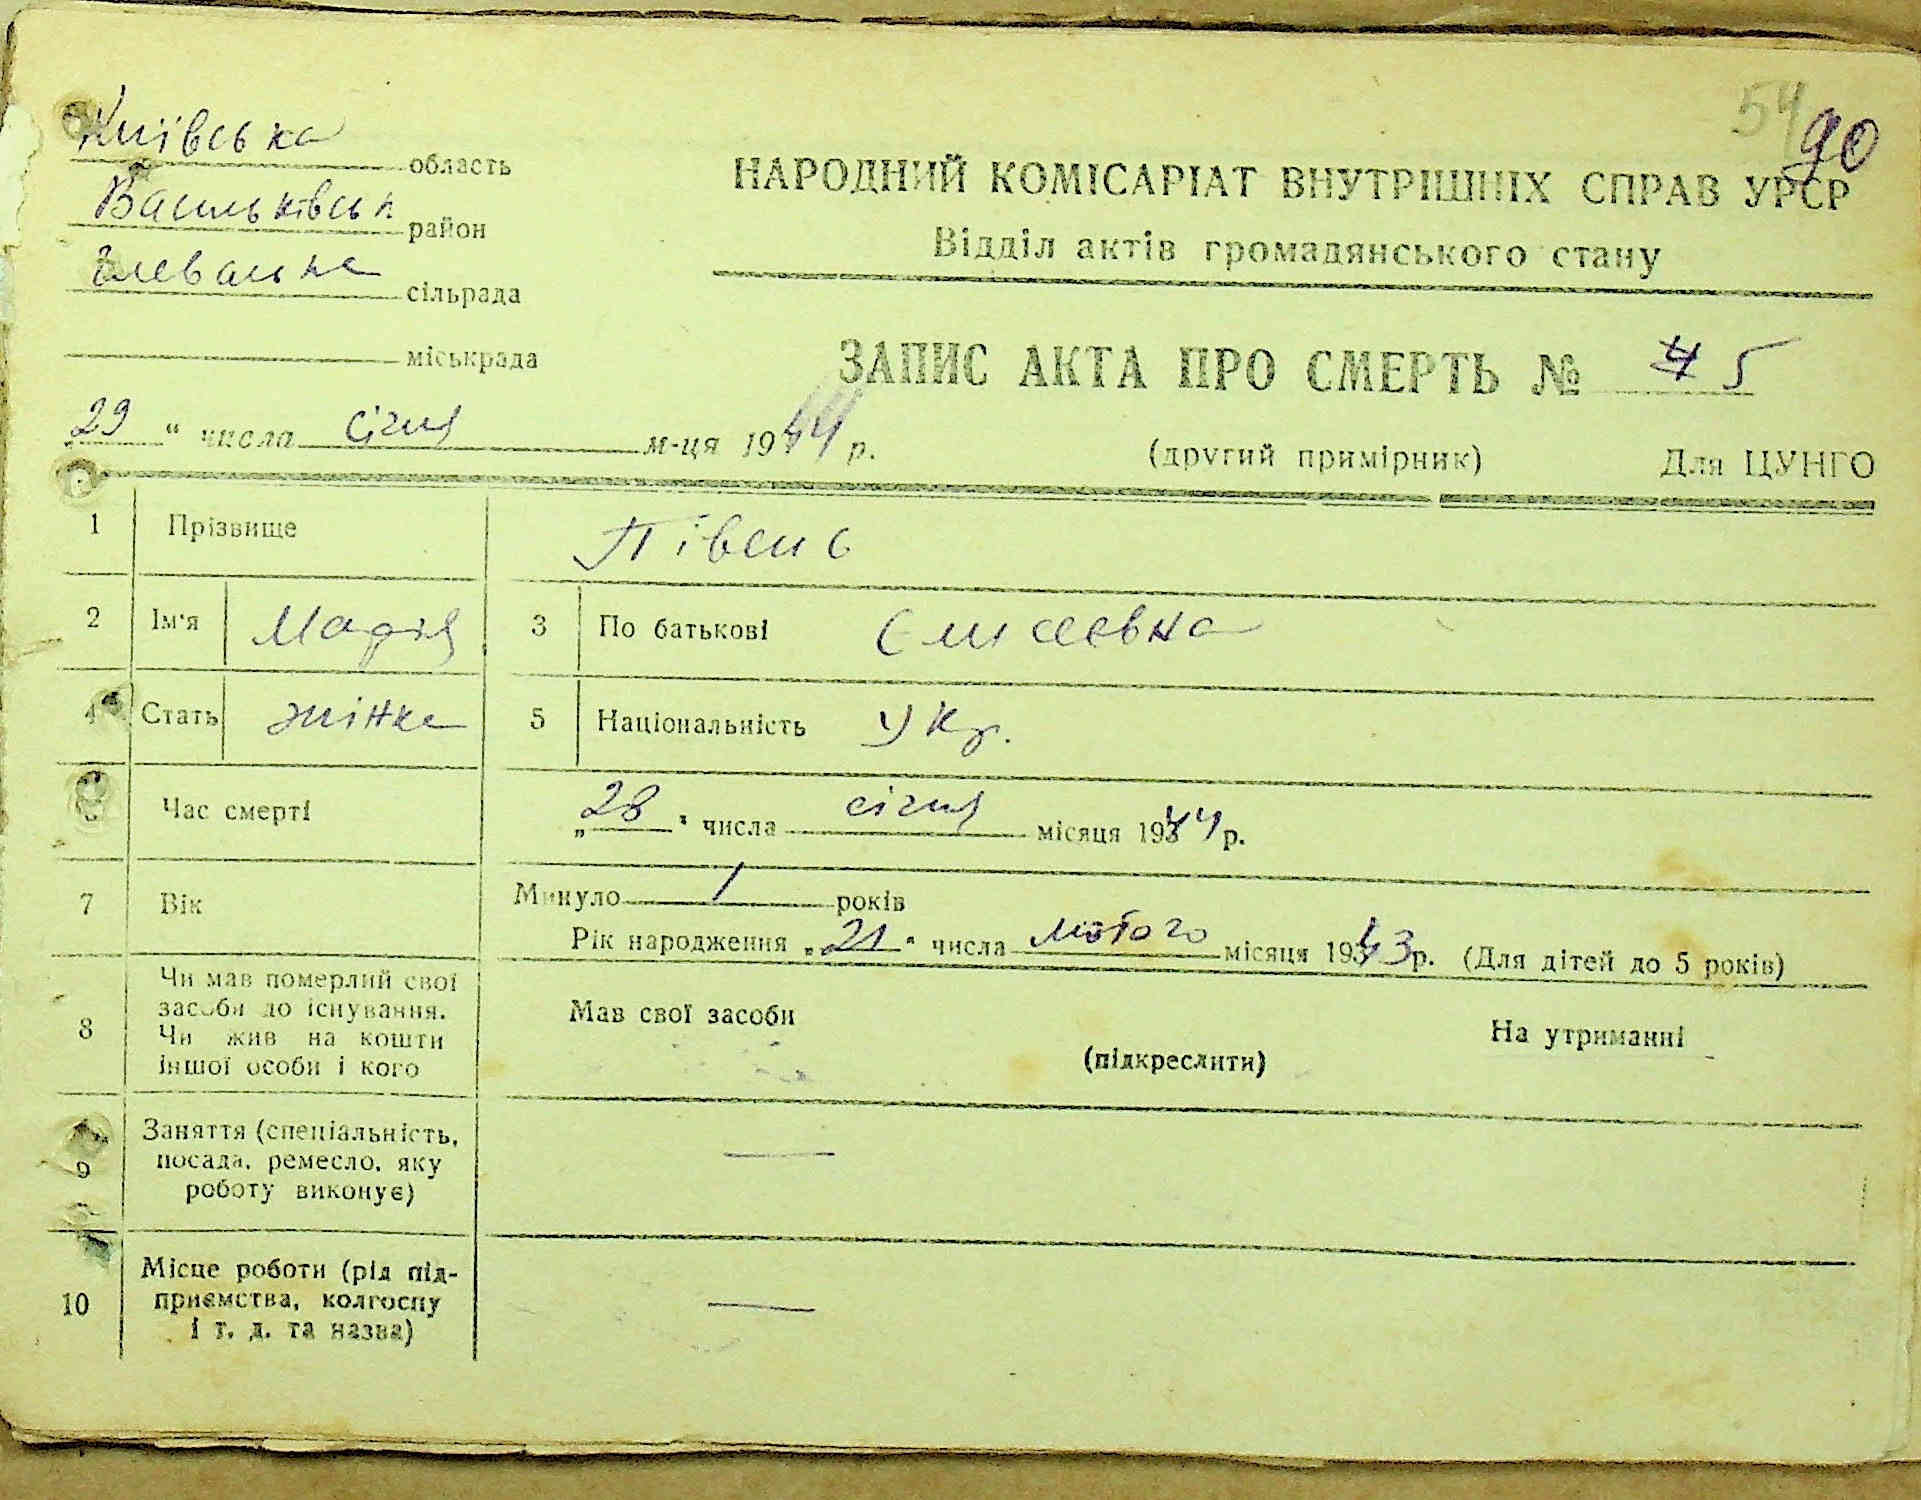 54 90
Київська область
Васильківськ район
Глевахка сільрада
міськрада
НАРОДНИЙ КОМІСАРІАТ ВНУТРІШНІХ СПРАВ УРСР
Відділ актів громадянського стану
ЗАПИС АКТА ПРО СМЕРТЬ № 5
„29“ числа січня м-ця 1944 р.
(другий примірник) Для ЦУНГО
1 Прізвище Півень
2 Ім'я Марія 3 По батькові Елисеевна
4 Стать жінка 5 Національність Укр.
6 Час смерті „28" числа січня місяця 1944 р.
7 Вік Минуло 1 років
Рік народження „21" числа лютого місяця 1943 р. (Для дітей до 5 років)
8 Чи мав померлий свої
засоби до існування.
Чи жив на кошти
іншої особи і кого
Мав свої засоби (підкреслити) На утриманні
9 Заняття (спеціальність,
посада, ремесло, яку
роботу виконує) —
10 Місце роботи (рід під-
приємства, колгоспу
і т. д. та назва) —